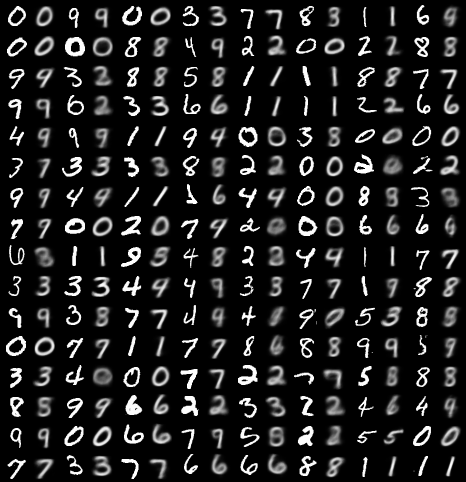 0 0 9 9 0 0 3 3 7 7 8 3 1 1 6 4
0 0 0 0 8 8 4 9 2 2 0 0 2 2 8 8
9 9 3 2 8 8 5 8 1 1 1 1 8 8 7 7
9 9 6 2 3 3 6 6 1 1 1 1 2 2 6 6
4 9 9 9 1 1 9 4 0 0 3 8 0 0 0 0
3 7 3 3 3 3 8 8 2 2 0 0 2 0 2 2
9 9 4 4 1 1 1 6 4 4 0 0 8 8 3 3
7 9 0 0 2 0 7 9 2 0 0 6 6 6 6
6 8 1 1 9 5 4 8 2 8 4 4 1 1 7 7
3 3 3 3 4 4 4 9 3 3 7 7 1 9 8 8
9 9 3 8 7 7 4 9 4 8 9 0 5 3 8 8
0 0 7 7 1 1 7 9 8 6 8 8 9 9 9
3 3 4 0 0 0 7 7 2 2 7 9 5 8 8 8
8 8 9 9 6 6 2 2 3 3 2 2 4 6 4 4
9 9 0 0 6 6 7 9 5 8 2 2 5 5 0 0
7 7 3 3 7 7 6 6 6 6 8 8 1 1 1 1